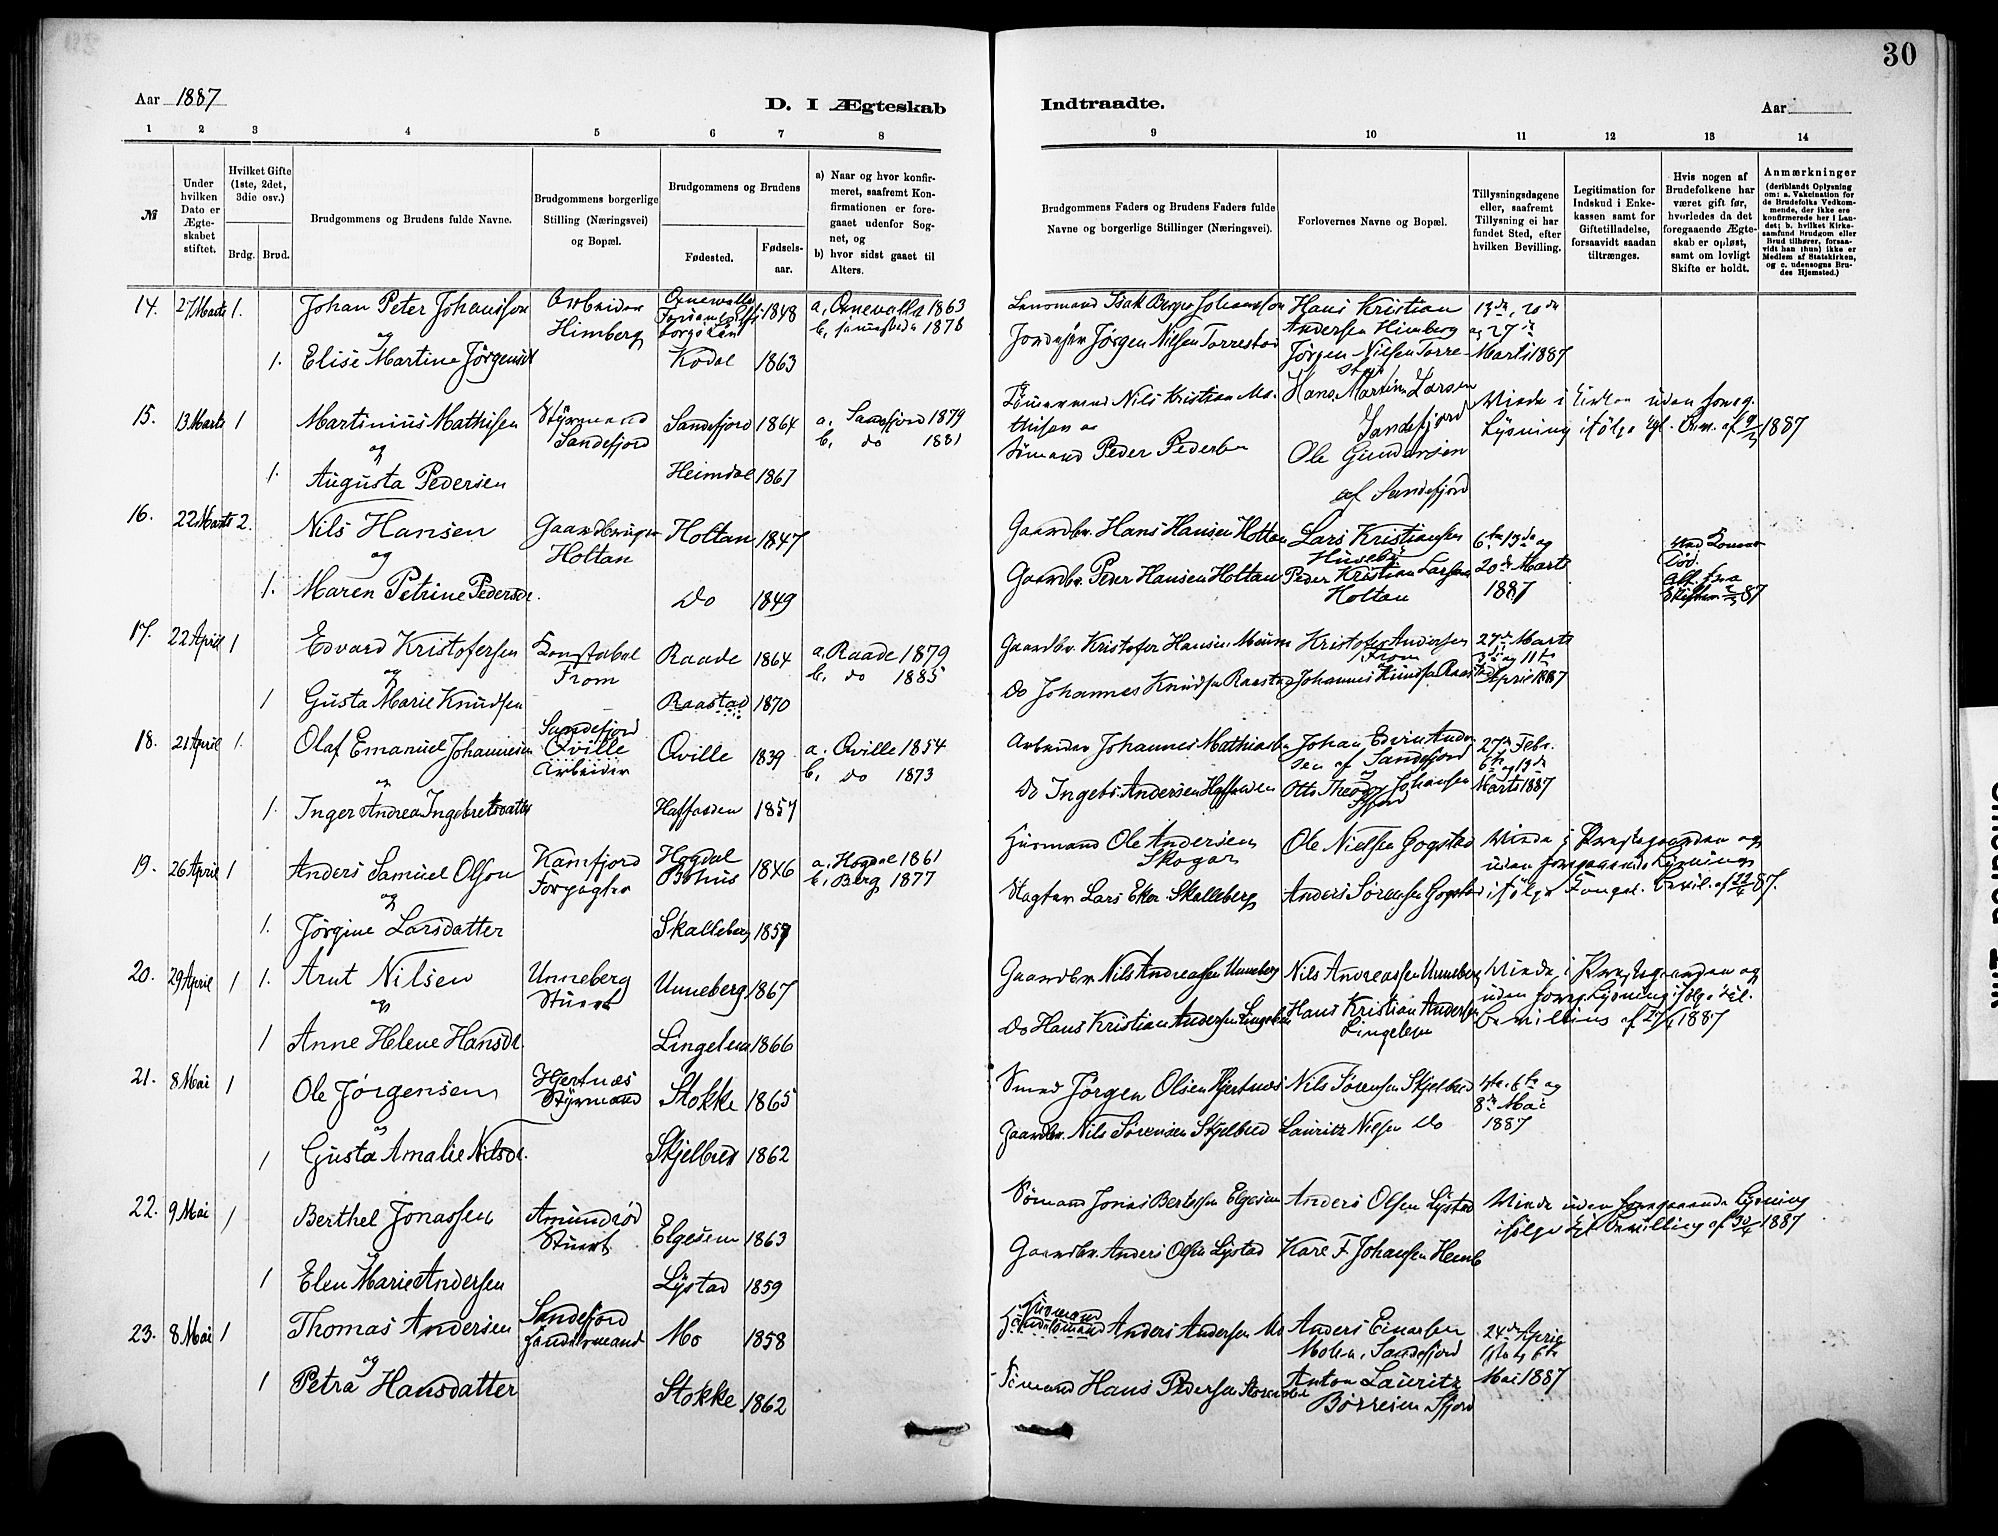 30
Aar 1887
D. I Ægteskab
Indtraadte.
Aar
1 2 3 4 5 6 7 8
9 10 11 12 13 14
№
Under hvilken Dato er Ægteskabet stiftet.
Hvilket Gifte (1ste, 2det, 3die osv.)
Brdg. Brud.
Brudgommens og Brudens fulde Navne.
Brudgommens borgerlige Stilling (Næringsvei) og Bopæl.
Brudgommens og Brudens
Fødested.
Fødsels-aar.
a) Naar og hvor konfirmeret, saafremt Konfirmationen er foregaaet udenfor Sognet, og
b) hvor sidst gaaet til Alters.
Brudgommens Faders og Brudens Faders fulde Navne og borgerlige Stillinger (Næringsvei).
Forlovernes Navne og Bopæl.
Tillysningsdagene eller, saafremt Tillysning ei har fundet Sted, efter hvilken Bevilling.
Legitimation for Indskud i Enkekassen samt for Giftetilladelse, forsaavidt saadan tiltrænges.
Hvis nogen af Brudefolkene har været gift før, hvorledes da det foregaaende Ægteskab er opløst, samt om lovligt Skifte er holdt.
Anmærkninger
(deriblandt Oplysning om: a. Vakcination for de Brudefolks Vedkommende, der ikke ere konfirmerede her i Landet; b. hvilket Kirkesamfund Brudgom eller Brud tilhører, forsaavidt han (hun) ikke er Medlem af Statskirken, og c. udensogns Brudes Hjemsted.)
14. 27 Marts 1. Johan Peter Johansson Arbeider 1848 1863
Himberg 1878
og
1. Elise Martine Jørgensd Kodal 1863
Johansson Hans Kristian 13de, 20de
Andersen Himberg og 27de
Jørgen Nilsen Torrestad Jørgen Nilsen Torrestad Marts 1887
15. 13 Marts 1 Martinius Mathisen Styrmand Sandefjord 1864 a. Sandefjord 1879
og Sandefjord b. do 1881
1. Augusta Pedersen Heimdal 1867
Nils Kristian Mathisen og Hans Martin Larsen Sandefjord Viede i Kirken uden foreg.
Sømand Peder Pedersen Ole Gundersen Lysning ifølge 1887
af Sandefjord
16. 22 Marts 2. Nils Hansen Gaardbruger Holtan 1847
og Holtan
1. Maren Petrine Pedersd. Do 1849
Gaardbr. Hans Hansen Holtan Lars Kristiansen 6te 13de og
Gaardbr. Peder Hansen Holtan Peder Kristian Larsen 20de Marts
Holtan 1887
Død. 87
17. 22 April 1 Edvard Kristofersen Konstabel Raade 1864 a. Raade 1879
og From b. do 1885
1 Gusta Marie Knudsen Raastad 1870
Gaardbr. Kristofer Hansen Kristofer Andersen 27de Marts
From 3die og 11te
Do Johannes Knudsen Raastad Johannes Knudsen Raastad April 1887
18. 21 April 1. Olaf Emanuel Johannesen Sandefjord Qville 1839 a. Qville 1854
og Qville Arbeider b. do 1873
1. Inger Andrea Ingebretsdatter 1857
Arbeider Johannes Mathiasen Johan Edvin Andersen af Sandefjord 27de Febr.
6te og 13de
Do Ingebr. Andersen Otto Theodor Johansen Marts 1887
19. 26 April 1 Anders Samuel Olson Kamfjord Hogdal 1846 a. Hogdal 1861
og Forpagter Bohus b. Berg 1877
1. Jørgine Larsdatter Skalleberg 1857
Husmand Ole Andersen Ole Nielsen Gogstad Viede i Præstegaarden og
Skogar uden foregaaende Lysning
Lars Eker Skalleberg Anders Sørensen Gogstad ifølge Kongel. Bevil. af 22/4 87.
20. 29 April 1 1. Arnt Nilsen Unneberg Unneberg 1867
og Stuert
1 Anne Helene Hansd. Lingelem 1866
Gaardbr. Nils Andreassen Unneberg Nils Andreassen Unneberg Viede i Præstegaarden og
uden foreg. Lysning ifølge
Do Hans Kristian Andersen Lingelem Hans Kristian Andersen Bevilling af 27/4 1887
Lingelem
21. 8 Mai 1 Ole Jørgensen Hjertnæs Stokke 1865
og Styrmand
1 Gusta Amalie Nilsd. Skjelbred 1862
Smed Jørgen Olsen Hjertnæs Nils Sørensen Skjelbred 6te og
8de Mai
Gaardbr. Nils Sørensen Skjelbred Lauritz Nilsen Do 1887
22. 9 Mai 1 Berthel Jonassen Amundrød Elgesem 1863
og Stuert
1 Elen Marie Andersen Lystad 1859
Sømand Jonas Bertelsen Elgesem Anders Olsen Lystad Viede uden foregaaende Lysning
ifølge Kgl Bevilling af 30/4 1887
Gaardbr. Anders Olsen Lystad Karl F Johansen
23. 8 Mai 1 Thomas Andersen Sandefjord Mo 1858
og
1 Petra Hansdatter Stokke 1862
Husmand Anders Andersen Mo Anders Einarsen 24de April
Sandefjord 1ste og 6te
Sømand Hans Pedersen Anton Lauritz Mai 1887
Børresen Sfjord